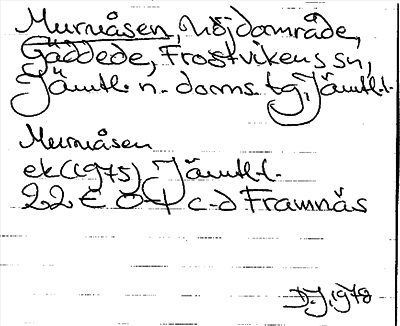 Murruåsen, höjdområde,
Gäddede, Frostvikens sn,
Jämtl. n. doms. tg, Jämtl.l.
Murruåsen
ek (1975) Jämtl.l.
22 E c-d Framnäs
D.J. 1978